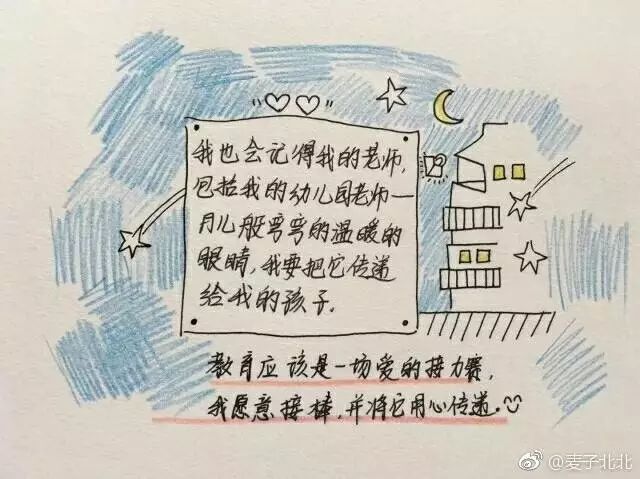 我也会记得我的老师,
包括我的幼儿园老师—
月儿般弯弯的温暖的
眼睛,我要把它传递
给我的孩子.
教育应该是一场爱的接力赛,
我愿意接棒,并将它用心传递.
@麦子北北